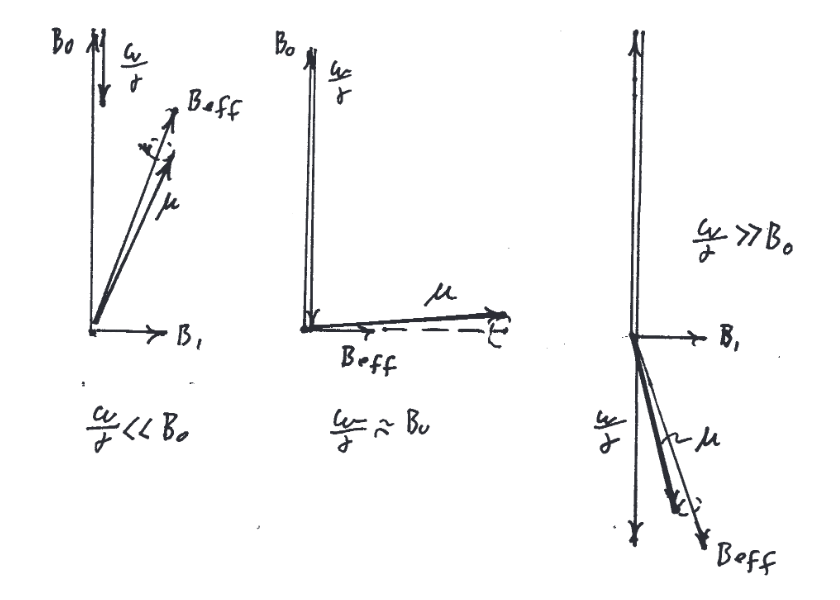 B₀
ω/γ
Beff
μ
B₁
ω/γ << B₀
B₀
ω/γ
μ
Beff
ω/γ ≈ B₀
ω/γ >> B₀
B₁
ω/γ
μ
Beff